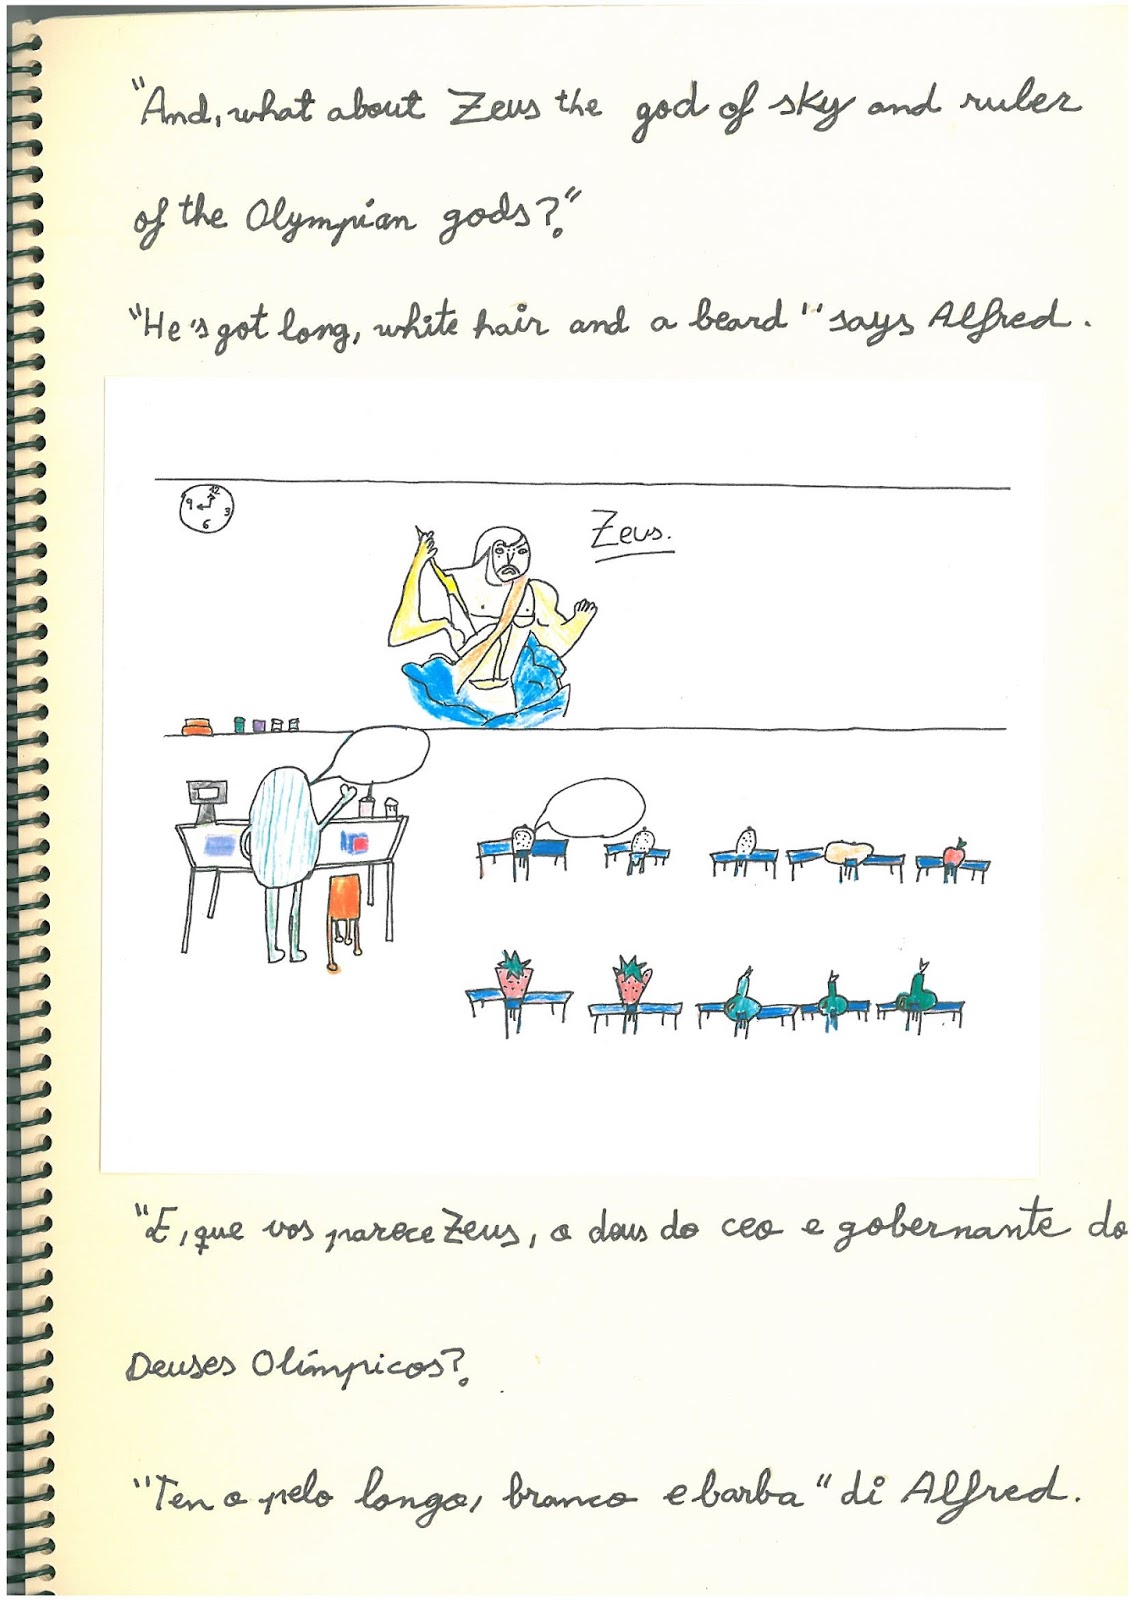 "And, what about Zeus the god of sky and ruler
of the Olympian gods?"
"He's got long, white hair and a beard" says Alfred.
12
9
3
6
Zeus.
"E, que vos parece Zeus, o deus do ceo e gobernante do
Deuses Olímpicos?
"Ten o pelo longo, branco e barba" di Alfred.